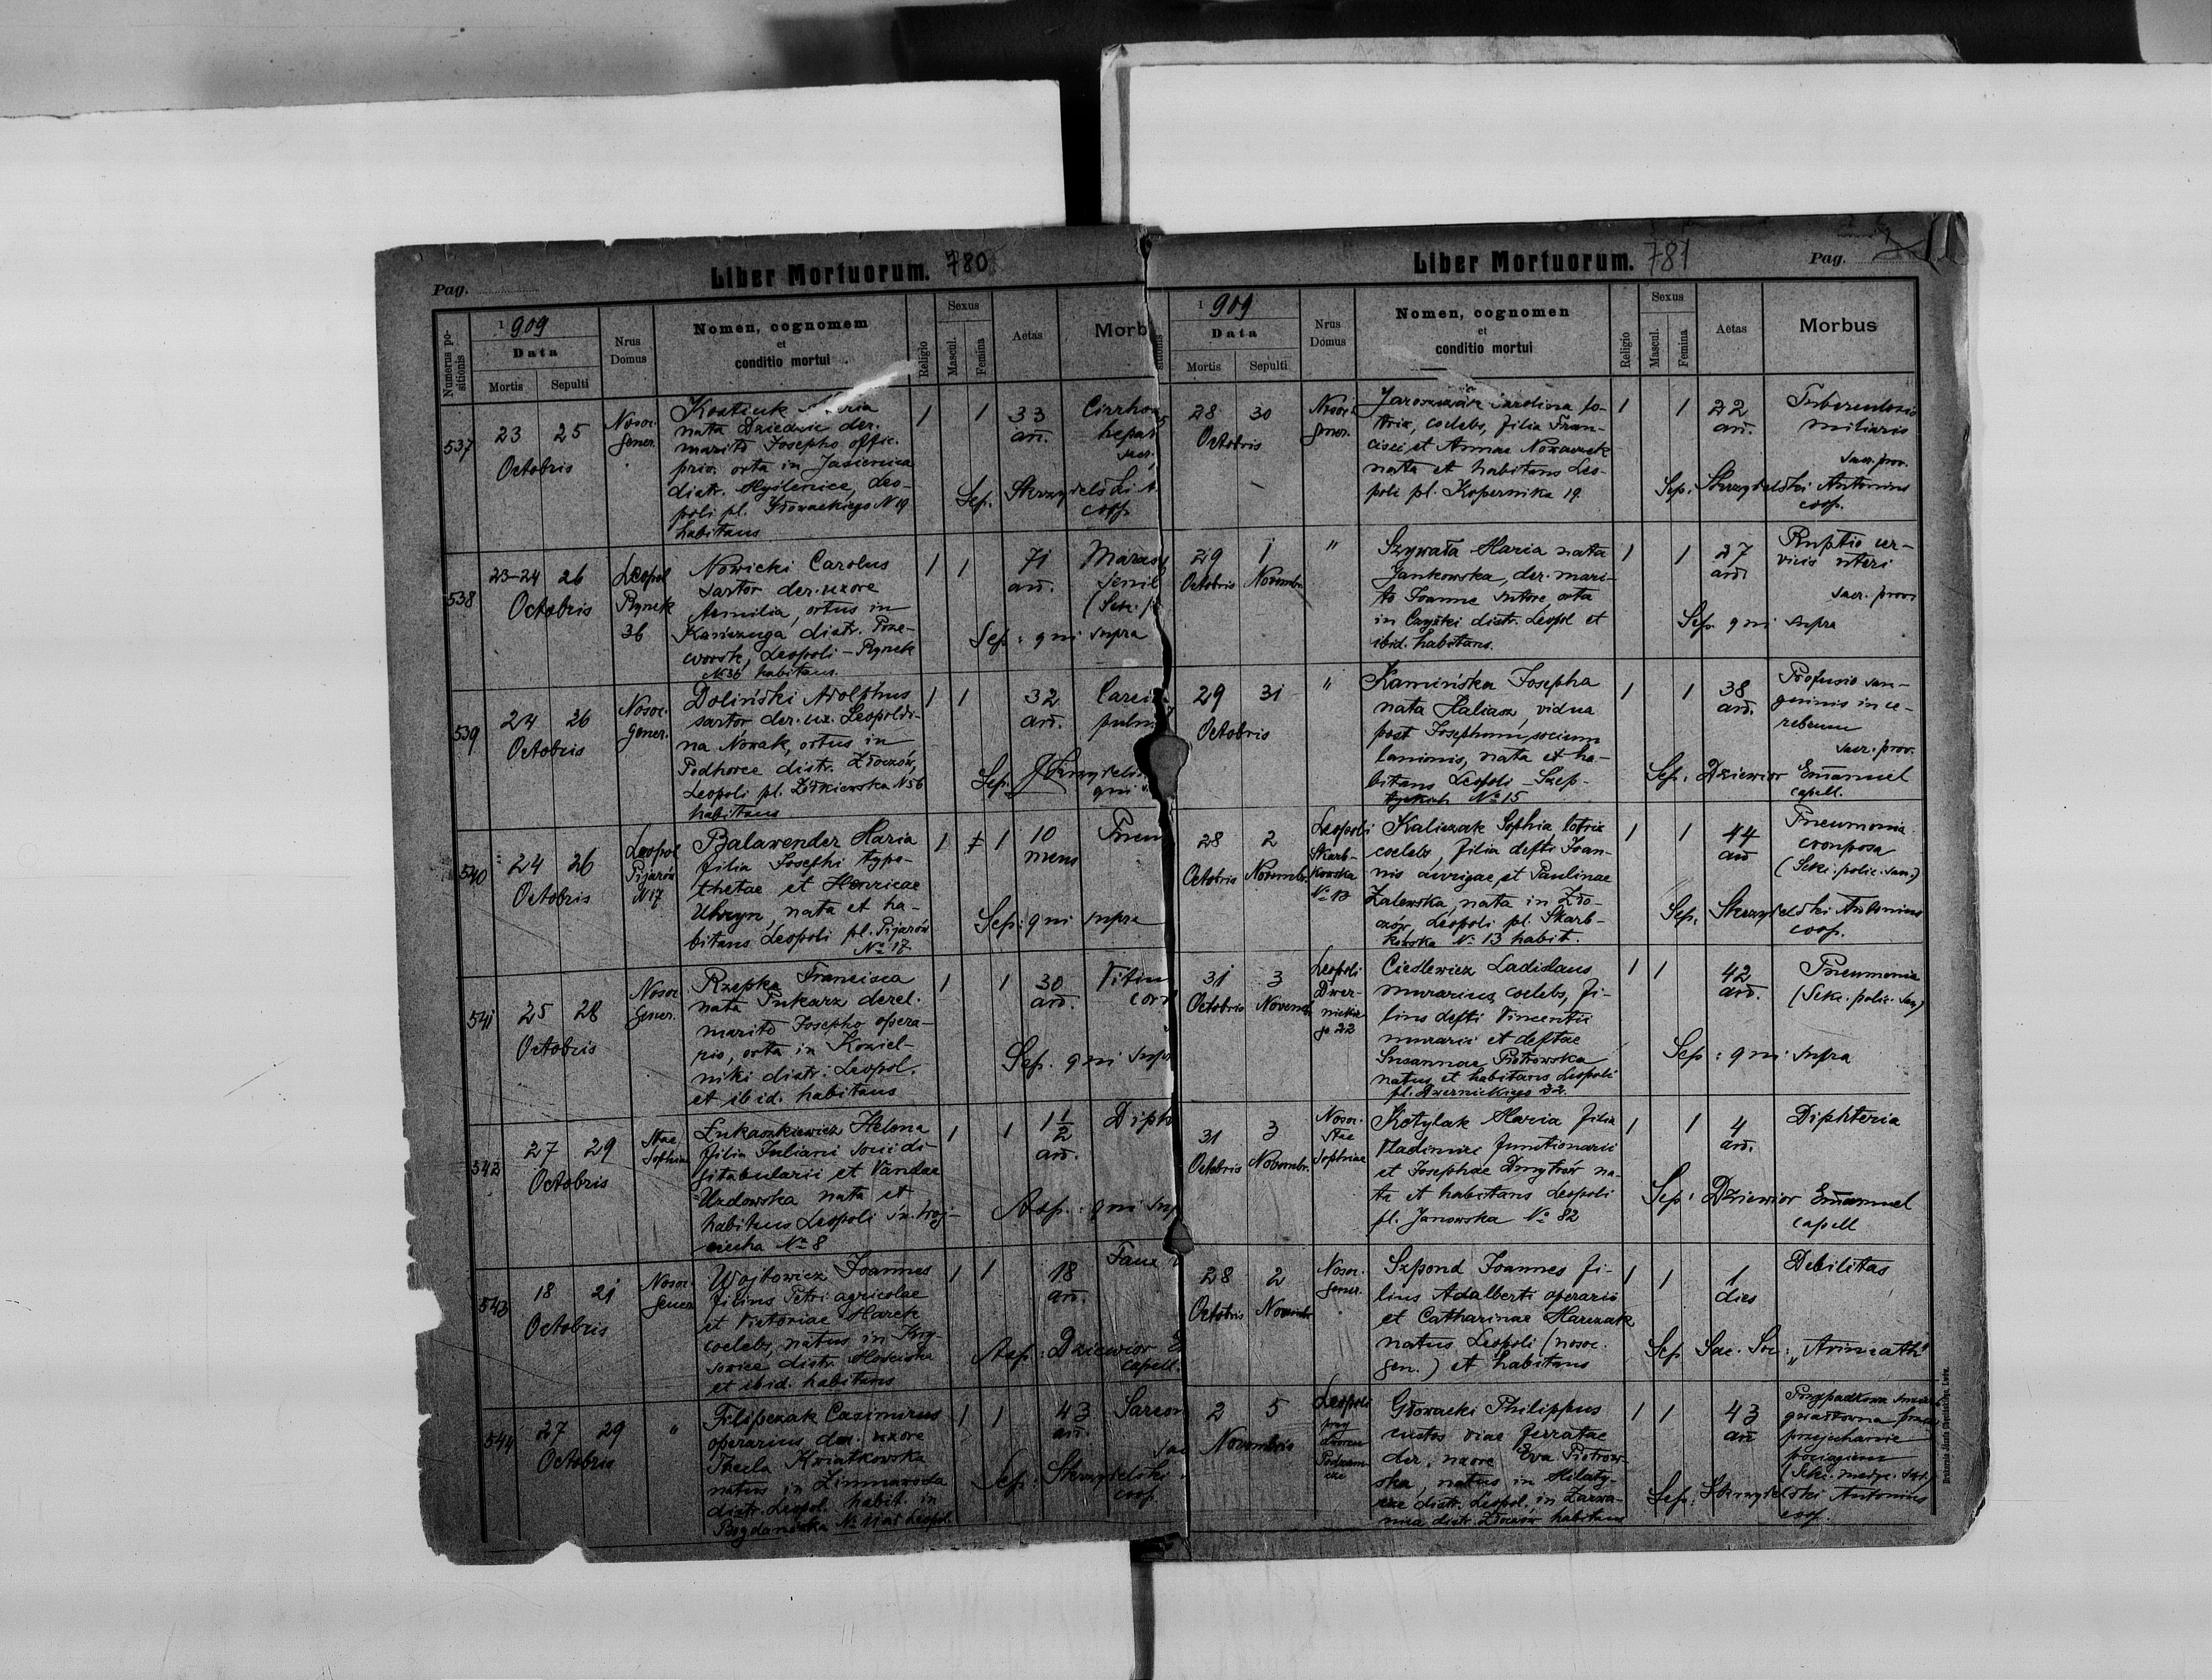 Pag.
Liber Mortuorum. 780
Numerus positionis
1909
Data
Mortis Sepulti
Nrus Domus
Nomen, cognomem
et
conditio mortui
Religio
Sexus
Mascul. Femina
Aetas
Morb
537
23 25
Octobris
Nosoc.
gener.
Kostiuk Maria
nata Dziedzic der.
marito Josepho offic.
priv. orta in Jasienica
distr. Myślenice, Leo-
poli pl. Słowackiego N 19
habitans
1 1
33
an.
Cirrhos
hepat
Sep. Skrzydelski A
coop.
538
23-24 26
Octobris
Leopol
Rynek
36
Nowicki Carolus
sartor der. uxore
Aemilia, ortus in
Kańczuga distr. Prze-
worsk, Leopoli - Rynek
No 36 habitans
1 1
71
an.
Maras
senil
Sep: qui supra
539
24 26
Octobris
Nosoc.
gener.
Doliński Adolphus
sartor der. ux. Leopoldi-
na Nowak, ortus in
Podhorce distr. Złoczów,
Leopoli pl. Żółkiewska N 56
habitans
1 1
32
an.
Carci
pulm
Sep.
540
24 26
Octobris
Leopol
Pijarów
N 17
Balawender Maria
filia Josephi typo-
thetae et Henricae
Uhryn, nata et ha-
bitans Leopoli pl. Pijarów
No 17
1 1
10
mens
Pneu
Sep: qui supra
541
25 28
Octobris
Nosoc
gener.
Rzepka Francisca
nata Pukarz derel.
marito Josepho opera-
rio, orta in Koziel-
niki distr: Leopol.
et ibid. habitans
1 1
30
an.
Vitiu
cord
Sep. qui supr
542
27 29
Octobris
Stae
Sophiae
Łukaszkiewicz Helena
filia Juliani socii di-
gitabularii et Vandae
Uzdowska nata et
habitans Leopoli św. Woj-
ciecha No 8
1 1
1 1/2
an.
Dipht
Asp.: qui sup
543
18 21
Octobris
Nosoc.
gener
Wojtowicz Joannes
filius Petri agricolae
et Victoriae Marek
coelebs, natus in Kry-
sowice distr. Mościska
et ibid. habitans
1 1
18
an.
Asp: Dziewior E
capell.
544
27 29
Octobris
"
Filipczak Casimirus
operarius der. uxore
Thecla Kwiatkowska
natus in Zimnawoda
distr. Leopol. habit. in
Bogdanówka No 11 ad Leopol.
1 1
43
an.
Sarcom
Sep: Skrzydelski
coop.
Liber Mortuorum. 781
Pag.
sitionis
1909
Data
Mortis Sepulti
Nrus Domus
Nomen, cognomen
et
conditio mortui
Religio
Sexus
Mascul. Femina
Aetas
Morbus
28 30
Octobris
Nosoc.
gener.
Carolina lo-
trix, coelebs, filia Fran-
cisci et Annae Nowaczek
nata et habitans Leo-
poli pl. Kopernika 19
1 1
22
an.
Tuberculosis
miliaris
sacr. prov.
Sep: Skrzydelski Antonius
coop.
29 1
Octobris Novembr.
"
Szywała Maria nata
Jankowska, der. mari-
to Joanne sutore, orta
in Czyżki distr. Leopol et
ibid. habitans.
1 1
27
an.
Ruptio cer-
vicis uteri
sacr. prov.
Sep. qui supra
29 31
Octobris
"
Kamińska Josepha
nata Haliasz, vidua
post Josephum, socium
lanionis, nata et ha-
bitans Leopoli - Szep-
tyckich No 15
1 1
38
an.
Profusio san-
guinis in ce-
rebrum
sacr. prov.
Sep: Dziewior Emanuel
capell.
28 2
Octobris Novembr.
Leopoli
Skarb-
kowska
No 13
Kaliczak Sophia lotrix
coelebs, filia defti Joan-
nis aurigae, et Paulinae
Zalewska, nata in Zło-
czów, Leopoli pl. Skarb-
kowska No 13 habit.
1 1
44
an
Pneumonia
crouposa
(Sekc. polic. san.)
Sep. Skrzydelski Antonius
coop.
31 3
Octobris Novemb.
Leopoli
Dwer-
nickie
go 32
Cieślewicz Ladislaus
murarius, coelebs, fi-
lius defti Vincentii
murarii et deftae
Susannae Piotrowska
natus et habitans Leopoli
pl. Dwernickiego 32.
1 1
42
an.
Pneumonia
(Sekc. polic. san.)
Sep: qui supra
31 3
Octobris Novembr.
Nosoc.
Stae
Sophiae
Kotylak Maria filia
Vladimiri functionarii
et Josephae Dmytrów na-
ta et habitans Leopoli
pl. Janowska No 82
1 1
4
an.
Diphteria
Sep: Dziewior Emanuel
capell
28 2
Octobris Novembr
Nosoc.
gener.
Szpond Joannes fi-
lius Adalberti operarii
et Catharinae Marczak
natus Leopoli (nosoc.
gen.) et habitans
1 1
1
dies
Debilitas
Sep Sac. Soc: „Arimath"
2 5
Novembris
Leopoli
przy
dworcu
Podzam-
cze
Głowacki Philippus
custos viae ferratae
der. uxore Eva Piotrow-
ska, natus in Hilaty-
cze distr. Leopol. in Zarwa-
nica distr. Złoczów habitans
1 1
43
an
Przypadkowa
gwałtowna przez
przejechanie
pociągiem
(Sekc. medyc. sąd.)
Sep: Skrzydelski Antonius
coop.